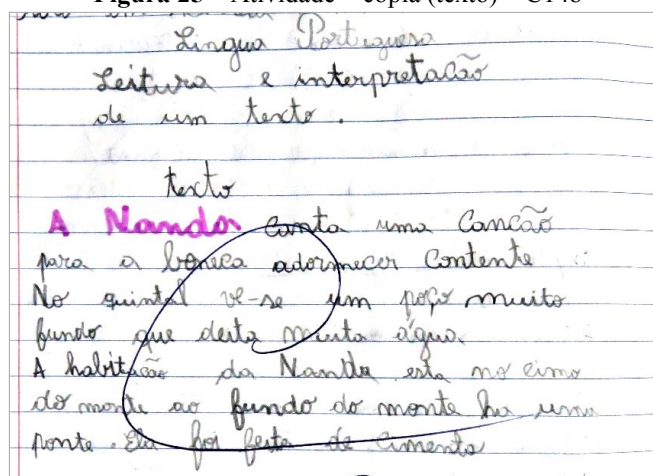 Figura 25 – Atividade – cópia (texto) – C14B
Lingua Portuguesa
Leitura e interpretação
de um texto.
texto
A Nanda canta uma Cancão
para a boneca adormecer Contente
No quintal vê-se um poço muito
fundo que deita muita água.
A habitacão da Nanda esta no cimo
do monte ao fundo do monte ha uma
ponte. Ela foi feita de cimento